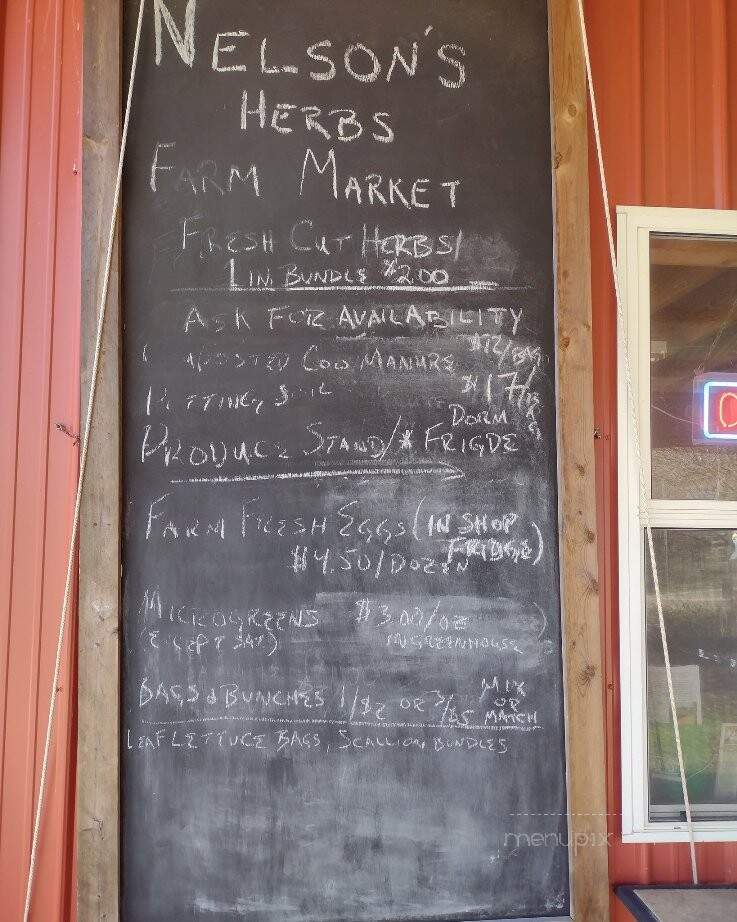 NELSON'S
HERBS
FARM MARKET
FRESH CUT HERBS/
1 IN. BUNDLE $2.00
ASK FOR AVAILABILITY
COW MANURE $12/BAG
POTTING SOIL $17/BAG
PRODUCE STAND/* DORM FRIGDE
FARM FRESH EGGS (IN SHOP
$4.50/DOZEN FRIDGE)
MICROGREENS $3.00/OZ
(EXCEPT SAT) IN GREENHOUSE)
BAGS & BUNCHES 1/$2 OR 3/$5 MIX OR MATCH
LEAF LETTUCE BAGS, SCALLION BUNDLES
menupix